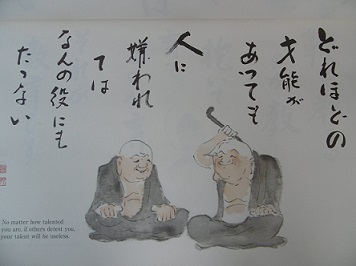 どれほどの
才能が
あっても
人に
嫌われ
ては
なんの役にも
たたない
No matter how talented
you are, if others detest you,
your talent will be useless.